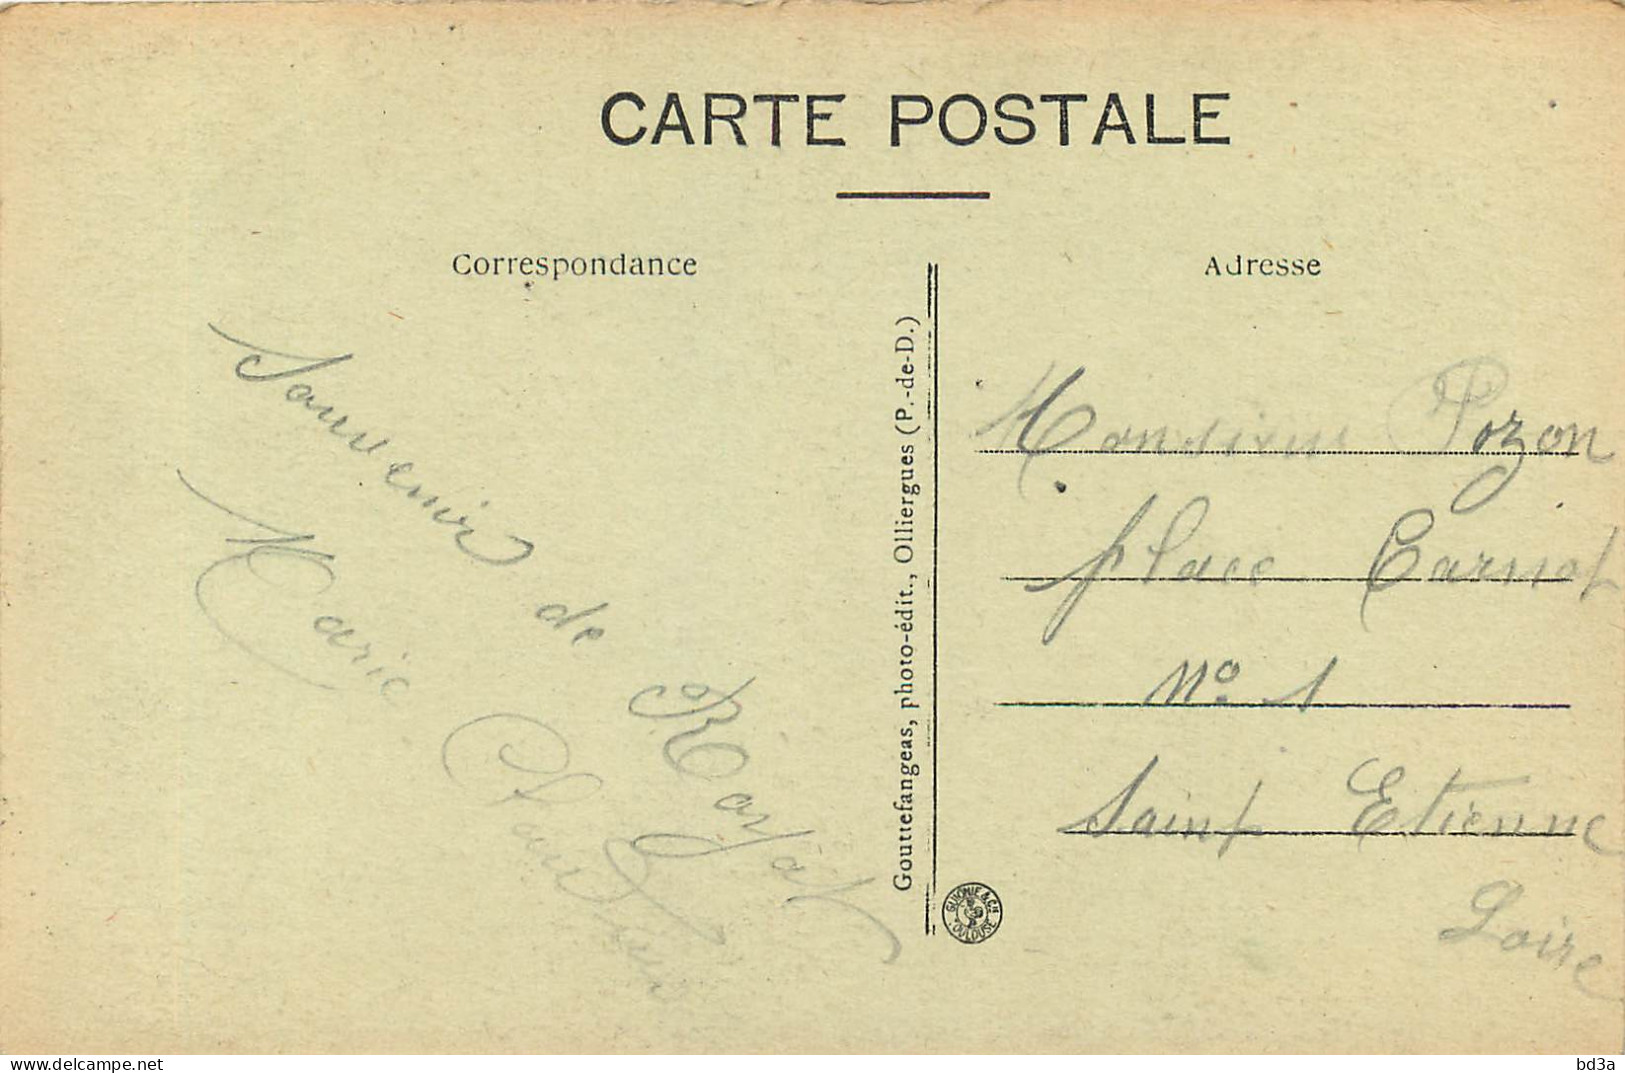 CARTE POSTALE
Correspondance
Souvenir de Royat
Marie
Gouttefangeas, photo-édit., Olliergues (P.-de-D.)
GUIONIE & Cie
TOULOUSE
Adresse
Monsieur Pozon
place Carnot
No. 1
Saint Etienne
Loire
delcampe.net
bd3a